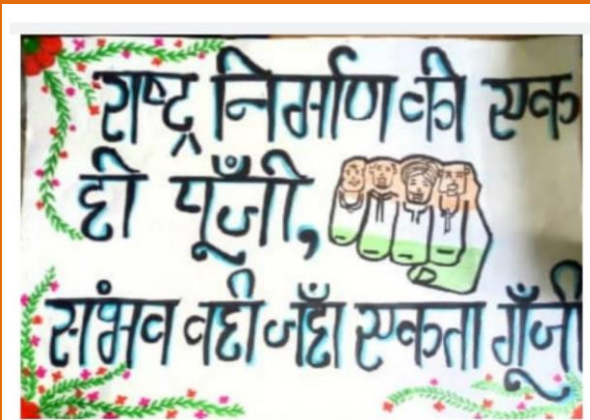 राष्ट्र निर्माण की एक
ही पूँजी,
संभव वही जहाँ एकता गूँजी